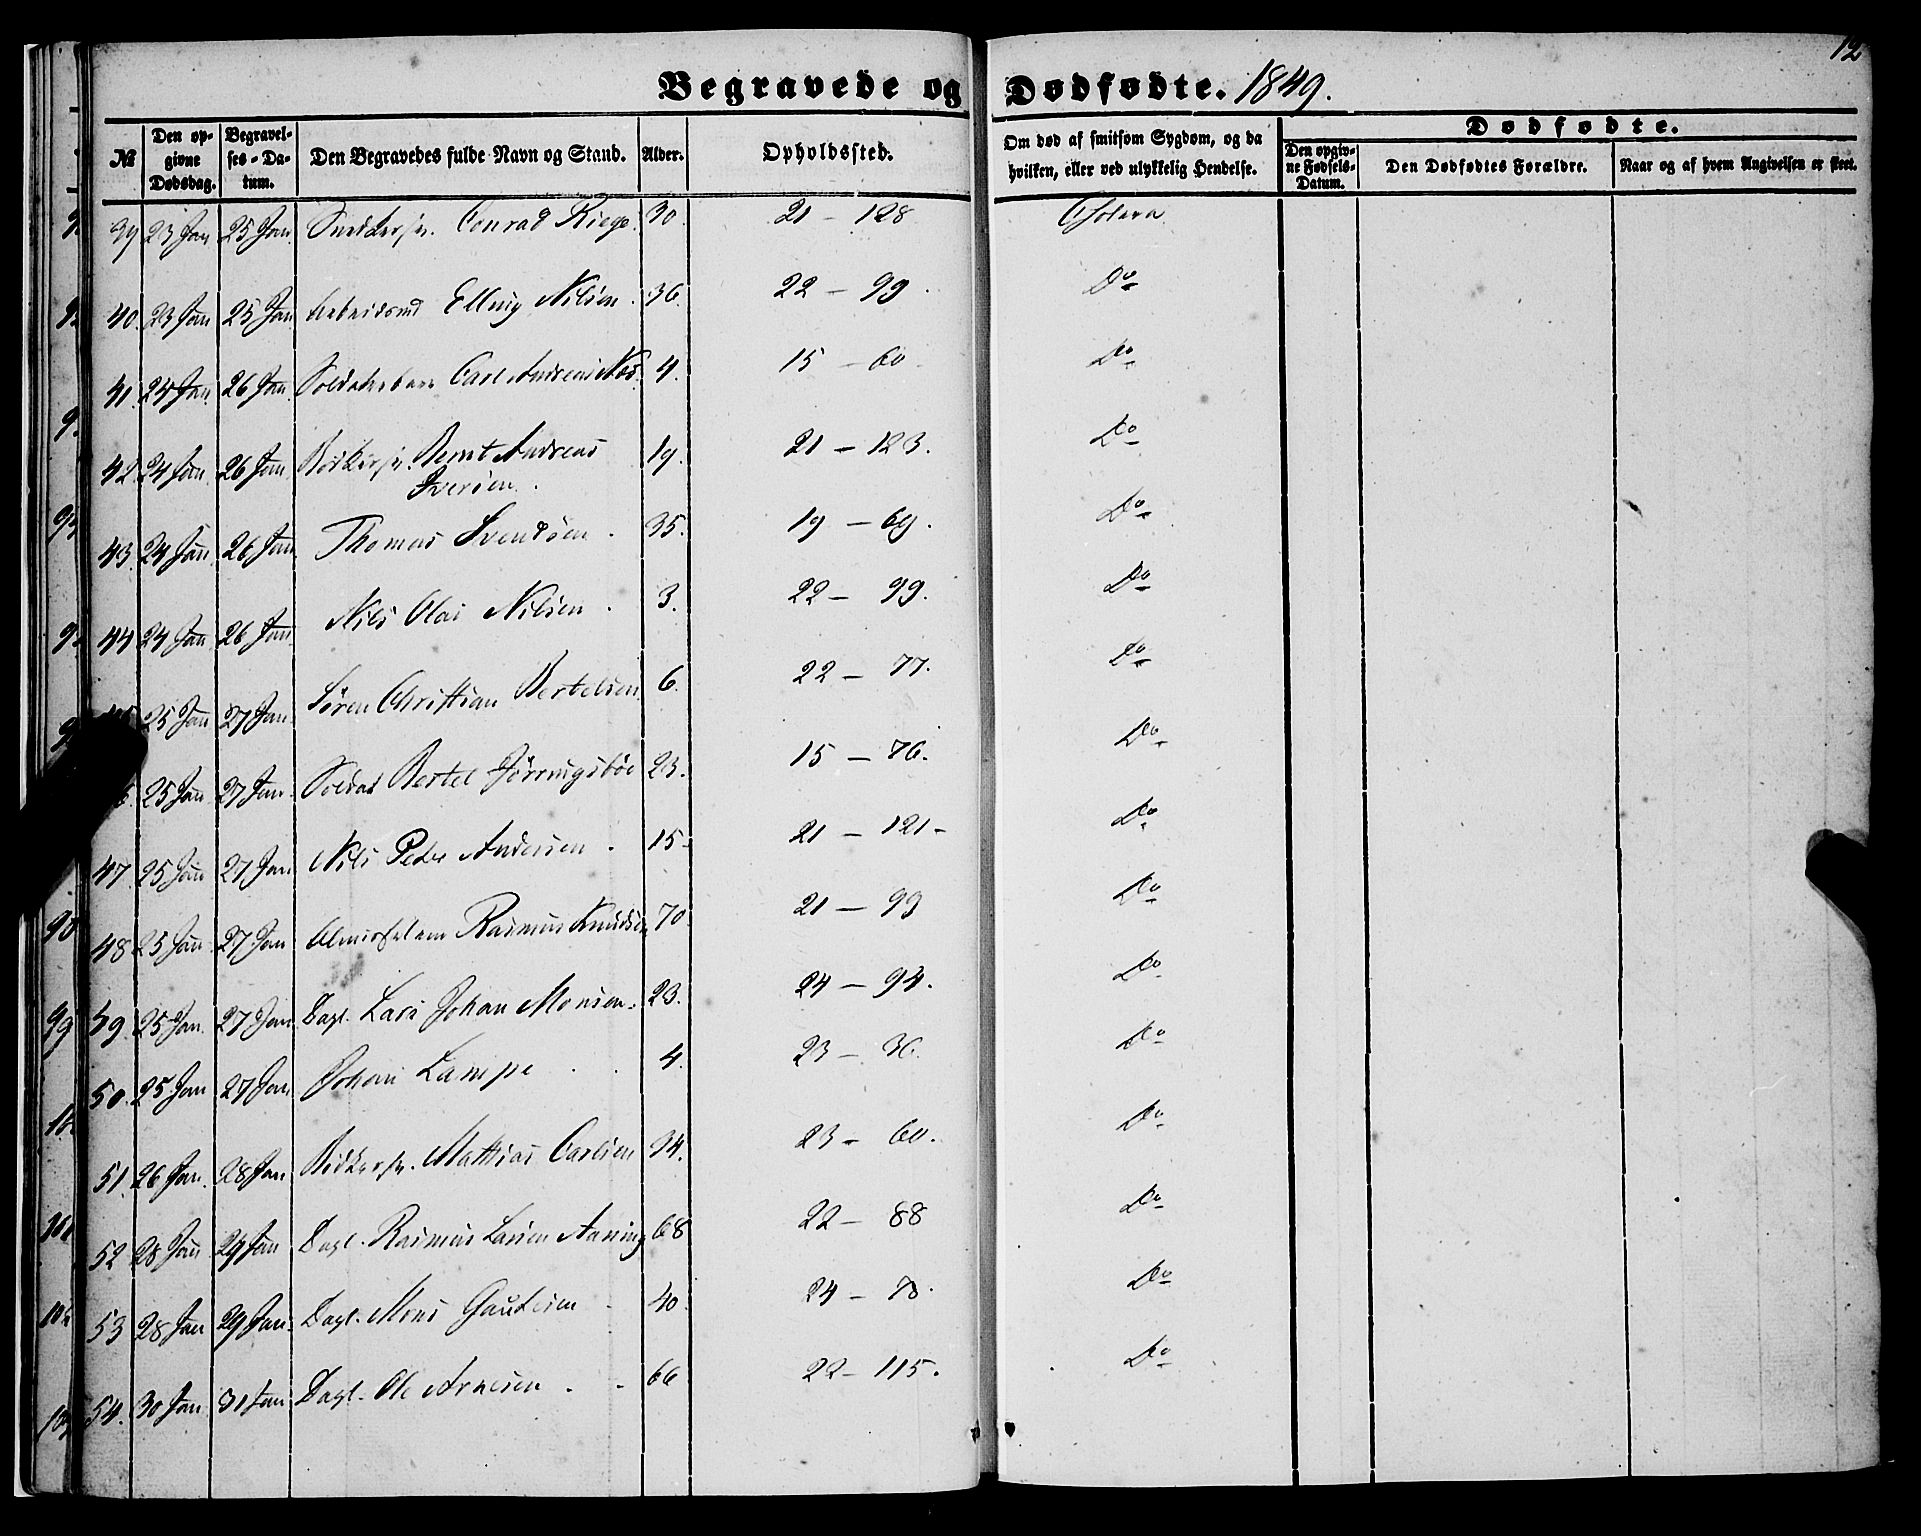 12
Begravede og Dødfødte. 1849.
№
Den opgivne Dødsdag.
Begravelses-Datum.
Den Begravedes fulde Navn og Stand.
Alder.
Opholdssted.
Om død af smitsom Sygdom, og da hvilken, eller ved ulykkelig Hendelse.
Dødfødte.
Den opgivne Fødsels-Datum.
Den Dødfødtes Forældre.
Naar og af hvem Angivelsen er skeet.
39 23 Jan 25 Jan. Snedkersv. Conrad Riege. 30. 21 - 128 Cholera
40. 23 Jan 25 Jan Arbeidsmd Elling Nilsen. 36. 22 - 99. Do
41. 24 Jan. 26 Jan. Soldatsbarn Carl Andreas 4. 15 - 60. Do
42. 24 Jan. 26 Jan Bødkersv. Bernt Andreas 19. 21 - 123. Do
Iversen.
43. 24 Jan. 26 Jan Thomas Svendsen. 35. 19 - 69. Do
44 24 Jan 26 Jan Nils Olai Nilsen. 3. 22 - 99. Do
25 Jan 27 Jan. Søren Christian Bertelsen 6. 22 - 77. Do
25 Jan 27 Jan. Soldat Bertel 23. 15 - 76. Do
47. 25 Jan 27 Jan. Nils Peder Andersen. 15. 21 - 121 - Do
48 25 Jan. 27 Jan Rasmus Knudsen 70. 21 - 99 Do
25 Jan. 27 Jan. Dagl. Lars Johan Monsen. 23. 24 - 94. Do
50. 25 Jan 27 Jan Johan Lampe . . 4. 23 - 36. Do
51. 26 Jan. 28 Jan Bødkersv. Mathias Carlsen 34. 23 - 60. Do
52 28 Jan 29 Jan Dagl. Rasmus Larsen 68 22 - 88 Do
53 28 Jan 29 Jan. Dagl. Mons Gautesen . 40. 24 - 70. Do
54. 30 Jan 31 Jan Dagl. Ole Arnesen . - 66 22 - 115. Do